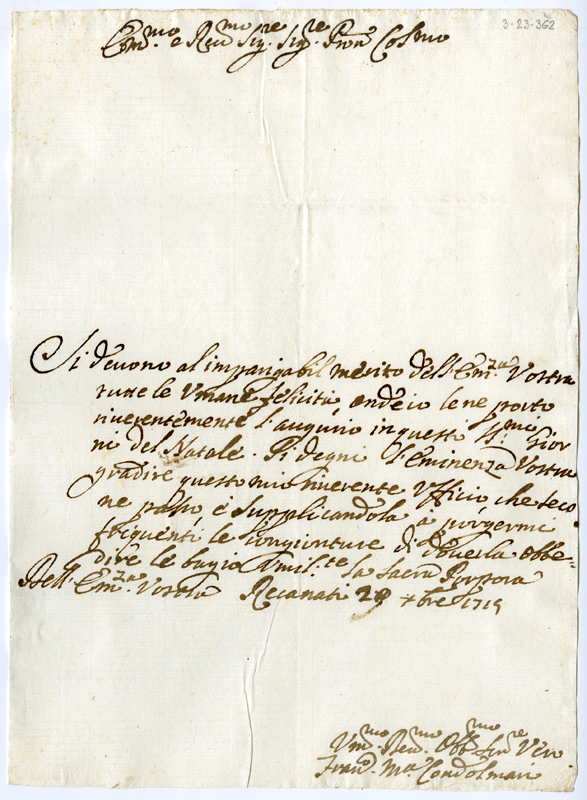 3-23-362
Em.mo e Reu.mo Sig.re Sig.re Pron Col.mo
Si deuono al imparigabil merito dell'Em.za Vostra
tutte le Vmane felicità onde io le ne porto
riuerentemente l'augurio in questi SS.mi Gior
ni del Natale. Si degni l'Eminenza Vostra
gradire questo mio riuerente Vfficio che seco
ne passo e supplicandola à porgermi
frequenti le congionture di douerla obbe-
dire le bagio Vmil.te la Sacra Porpora
Dell'Em.za Vostra Recanati 20 Xbre 1719
Vm.mo Reu.mo Obb.mo Ser.re Vero
Fran.co M.a Condolmari